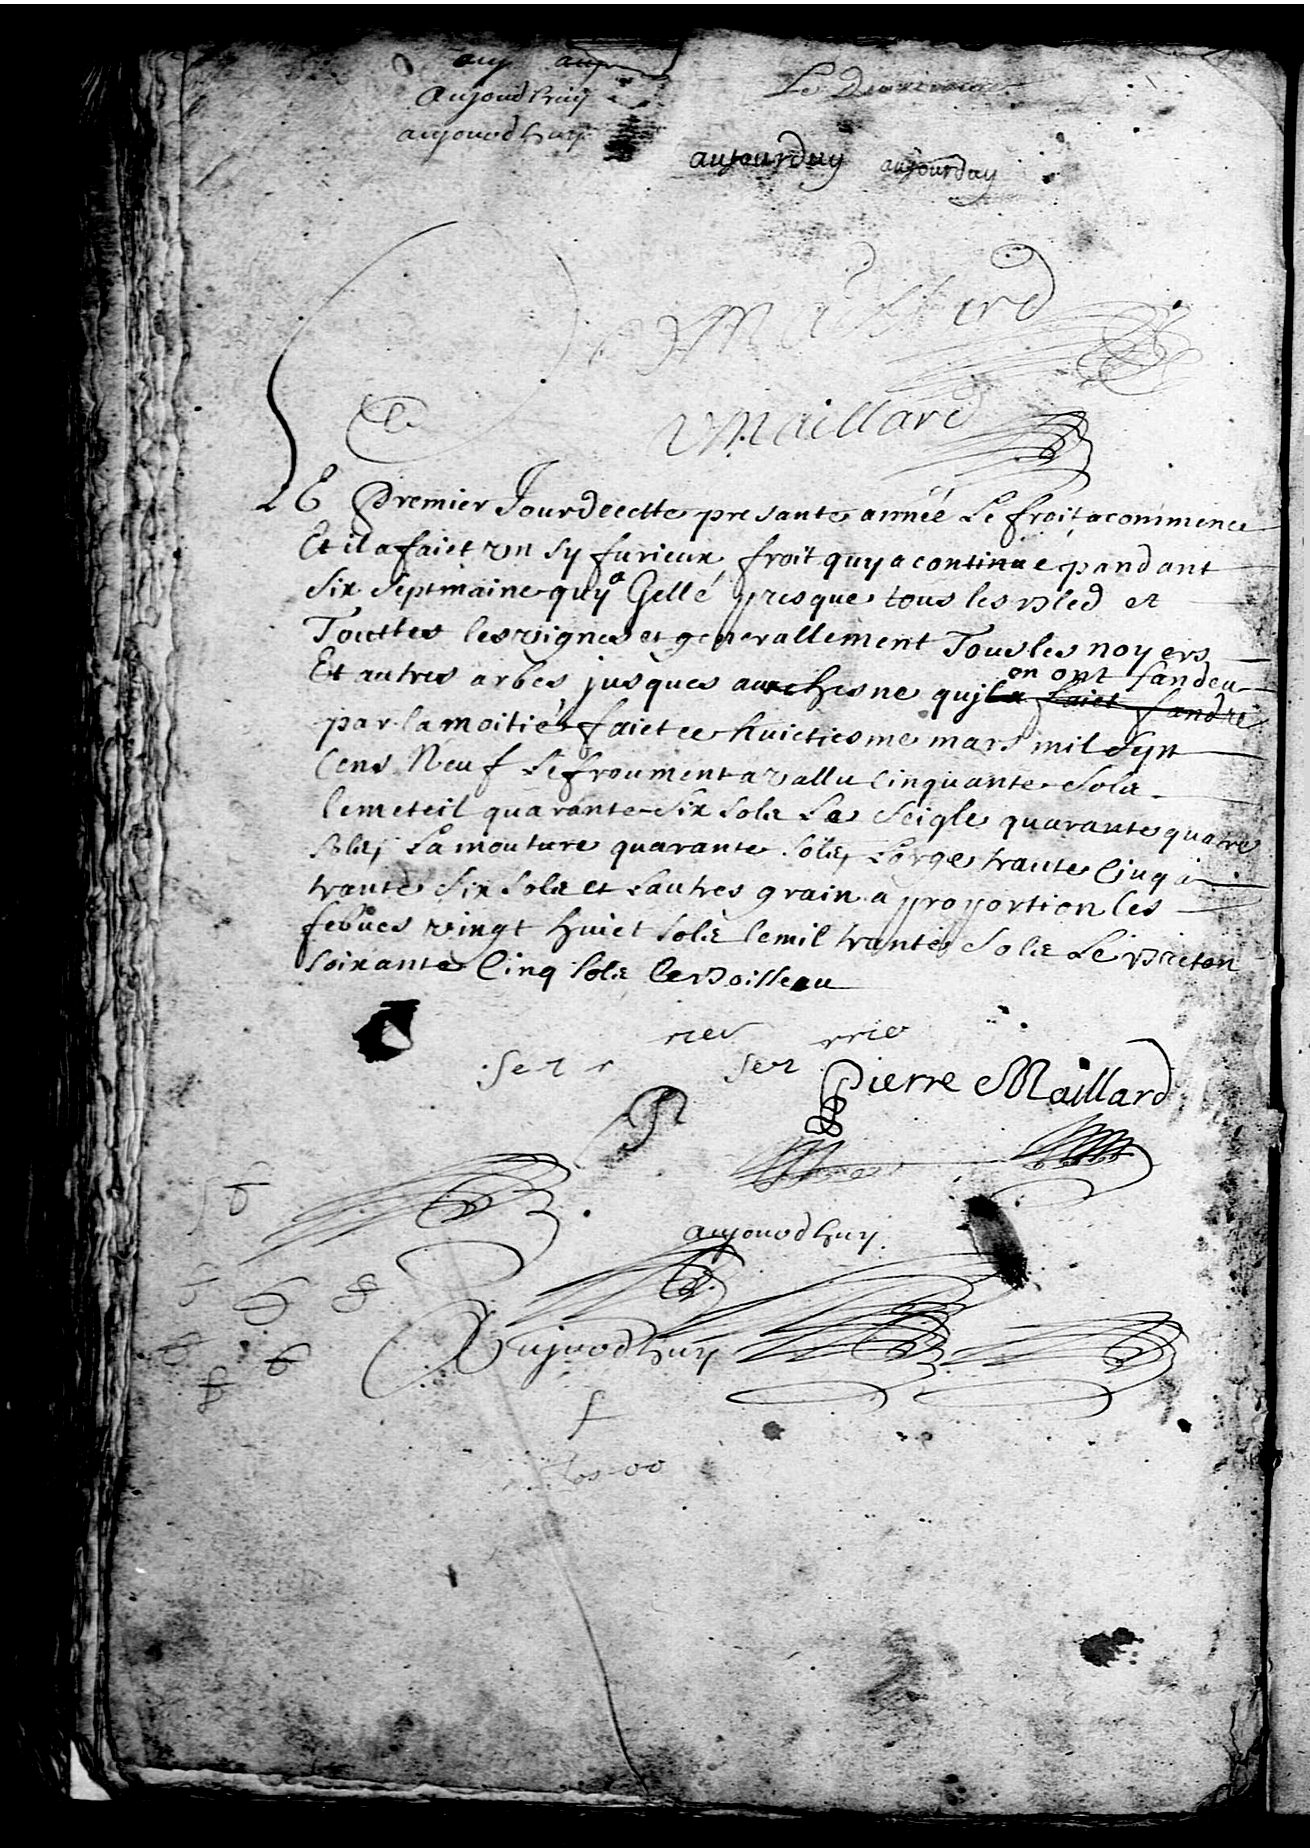 auy auj
aujoud huy
aujouod huy
Le
aujourduy aujourduy
Maillard
Maillard
LE Premier Jour de cette presante année Le froit a commence
Et il a faict un sy furieux froit quy a continue pandant
six septmaine quy a Gellé presque tous les bled et
Touttes les vignes et generallement Tous les noyers
Et autres arbes jusques au chesne quj la faict fandre en ont fandeu
par la moitié faict ce huictiesme mars mil sept
Cens Neuf Le froument a vallu Cinquante solz
Le meteil quarante six solz Le Seigle quarante quatre
solz, La mouture quarante solz, Lorge trante Cinq a
trante six solz et Lautres grain a proportion les
febues vingt huict solz le mil trante solz Le
soixante Cinq solz le boisseau
rier rrie
Ser r Ser
Pierre Maillard
P
aujouod huy
Aujouod huy